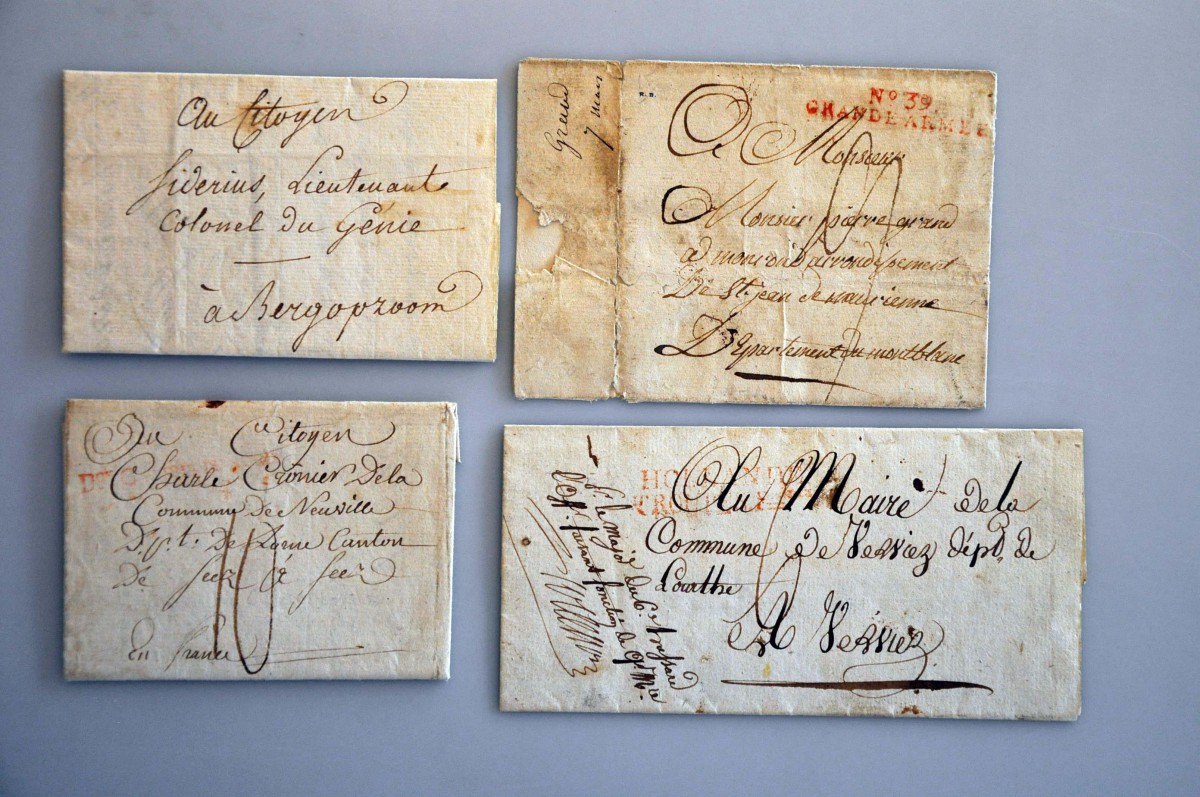 Au Citoyen
Siderius, Lieutenant
Colonel du Génie
à Bergopzoom
Grand
7 mars
B.B.
No 39
GRANDE ARMÉE
A Monsieur
Monsier pierre grand
arrondisement
De St. jean de maurienne
Departement du montblanc
Au Citoyen
Charle Cronier De la
Commune De Neuville
Dept. De Canton
De Seez a Seez
En france
HOLLANDE
Au Maire de la
Commune de Verviez dépt. de
Lourthe
A Verviez
Pr. le major du 6e
l'Off. faisant fonction de